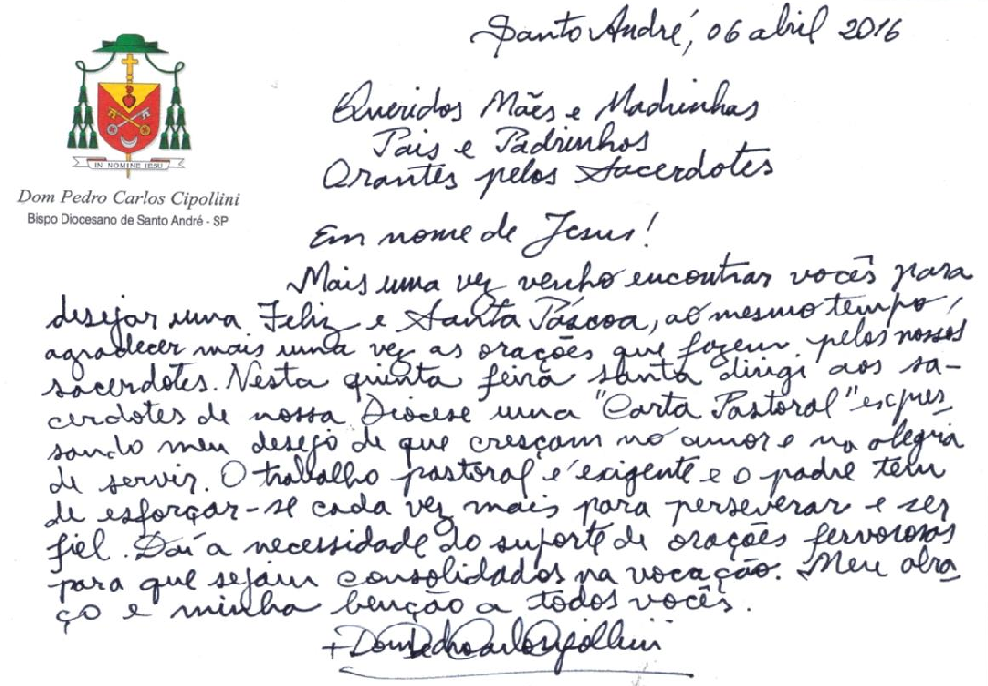 Santo André, 06 abril 2016
IN NOMINE IESU
Dom Pedro Carlos Cipollini
Bispo Diocesano de Santo André - SP
Queridos Mães e Madrinhas
Pais e Padrinhos
Orantes pelos Sacerdotes
Em nome de Jesus!
Mais uma vez venho encontrar vocês para
desejar uma Feliz e Santa Páscoa, ao mesmo tempo,
agradecer mais uma vez as orações que fazem pelos nossos
sacerdotes. Nesta quinta feira santa dirigi aos sa-
cerdotes de nossa Diocese uma "Carta Pastoral" expres
sando meu desejo de que cresçam no amor e na alegria
de servir. O trabalho pastoral é exigente e o padre tem
de esforçar-se cada vez mais para perseverar e ser
fiel. Daí a necessidade do suporte de orações fervorosas
para que sejam consolidados na vocação. Meu abra
ço e minha benção a todos vocês.
+ Dom Pedro Carlos Cipollini